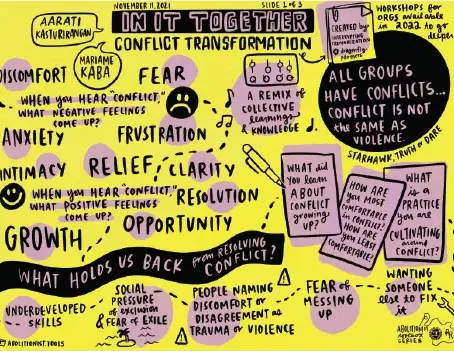 NOVEMBER 11, 2021
SLIDE 1 of 3
IN IT TOGETHER
CONFLICT TRANSFORMATION
AARATI
KASTURIRANGAN
MARIAME
KABA
CREATED by:
INTERRUPTING
CRIMINALIZATION
&
WORKSHOPS for
ORGS available
in 2022 to go
deeper
DISCOMFORT
FEAR
WHEN you HEAR "CONFLICT,"
WHAT NEGATIVE FEELINGS
COME UP?
ANXIETY
FRUSTRATION
A REMIX of
COLLECTIVE
learnings
& KNOWLEDGE
ALL GROUPS
HAVE CONFLICTS...
CONFLICT IS NOT
the SAME AS
VIOLENCE.
STARHAWK, TRUTH or DARE
INTIMACY
RELIEF
CLARITY
WHEN you HEAR "CONFLICT,"
WHAT POSITIVE FEELINGS
COME UP?
RESOLUTION
GROWTH
OPPORTUNITY
WHAT did
you learn
ABOUT
CONFLICT
GROWING
UP?
HOW ARE
you MOST
COMFORTABLE
in CONFLICT?
HOW ARE
you LEAST
COMFORTABLE?
WHAT
is a
PRACTICE
you are
CULTIVATING
around
CONFLICT?
WHAT HOLDS US BACK from RESOLVING
CONFLICT?
UNDERDEVELOPED
SKILLS
SOCIAL
PRESSURE
of exclusion
& FEAR of EXILE
PEOPLE NAMING
DISCOMFORT or
DISAGREEMENT as
TRAUMA or VIOLENCE
FEAR of
MESSING
UP
WANTING
SOMEONE
else to FIX
it
ABOLITIONIST.TOOLS
ABOLITIONIST
SERIES